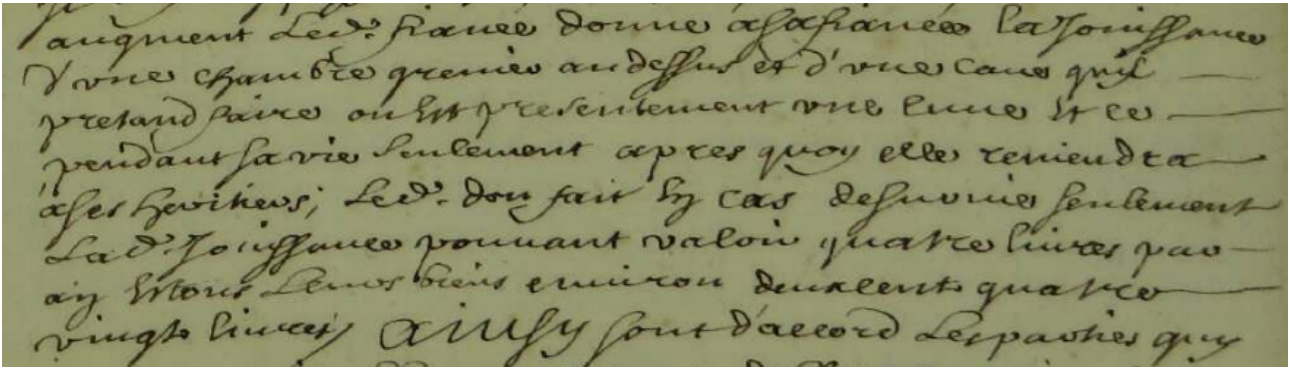 augment Led. fiancé donne a sa fiancée la Jouissance
d'une chambre grenier au dessus et d'une cave quil
pretand faire ou Est presentement une cuve Et ce
pendant sa vie seulement apres quoy elle reviendra
a ses heritiers; Led. don fait En cas de survie seulement
Lad. Jouissance pouvant valoir quatre livres par
an Et tous Leurs biens environ deux cent quatre
vingt livres, Ainsy sont d'accord Les parties quy